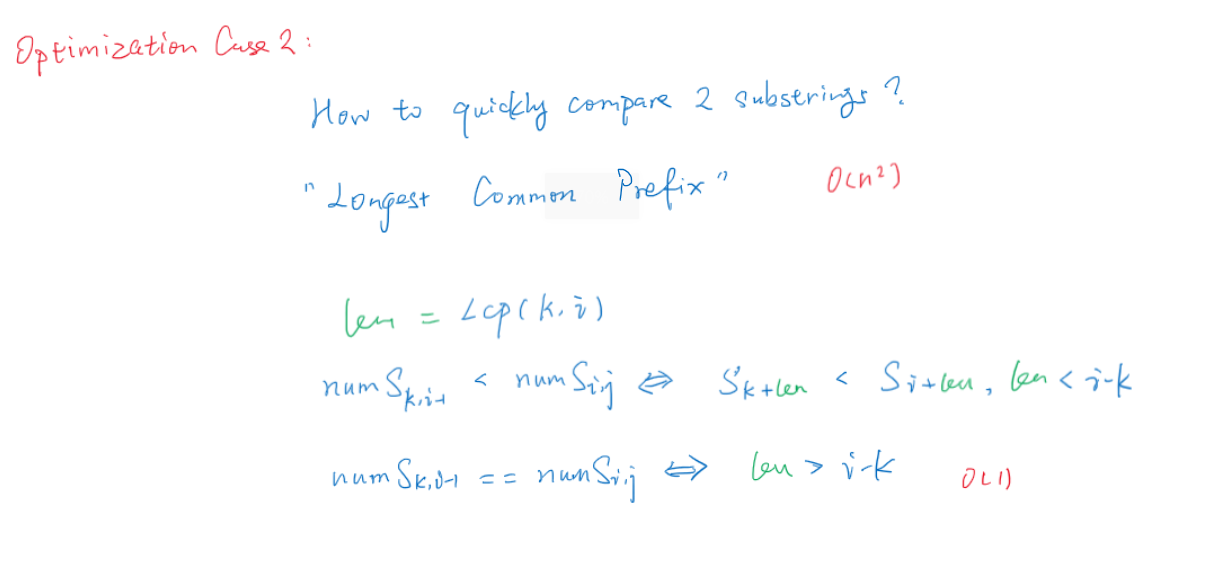 Optimization Case 2:
How to quickly compare 2 substrings?
"Longest Common Prefix" O(n²)
len = Lcp(k, i)
num S_{k,i-1} < num S_{i,j} ⇔ S_{k+len} < S_{i+len}, len < i-k
num S_{k,i-1} == num S_{i,j} ⇔ len > i-k O(1)